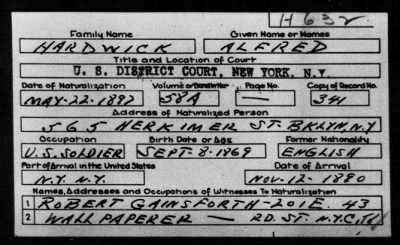 H 632
Family Name Given Name or Names
HARDWICK ALFRED
Title and Location of Court
U. S. DISTRICT COURT, NEW YORK, N.Y.
Date of Naturalization Volume or Bundle No Page No. Copy of Record No.
MAY-22-1892 58A — 341
Address of Naturalized Person
565 HERKIMER ST. BKLYN, N.Y
Occupation Birth Date or Age Former Nationality
U.S. SOLDIER SEPT-8-1869 ENGLISH
Port of Arrival in the United States Date of Arrival
N.Y. N.Y. NOV-12-1880
Names, Addresses and Occupations of Witnesses To Naturalization
1 ROBERT GAINSFORTH-201 E. 43
2 WALLPAPERER — RD. ST. N.Y.C.